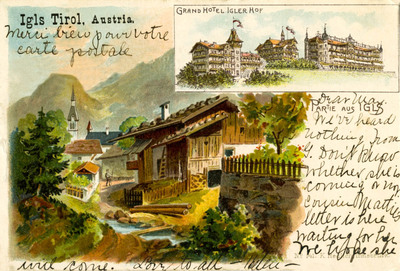 Igls Tirol, Austria.
Merci bien pour votre
carte postale
GRAND HOTEL IGLER HOF
PARTIE AUS IGLS
Dear May,
We've heard
nothing from
G. Don't know
whether she is
coming or no
cousin
letter is here
waiting for her
We hope she
will come. Love to all